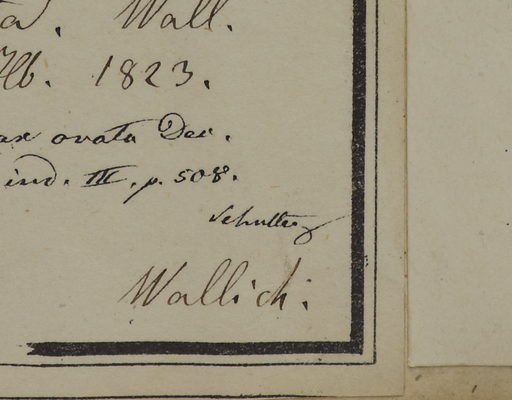 Wall.
Hb. 1823.
ovata Dec.
ind. III. p. 508.
Schultes
Wallich.